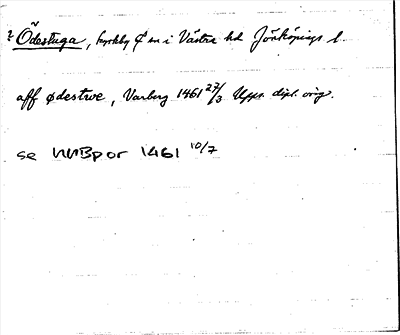 ? Ödestuga, kyrkby & sn i Västra hd Jönköpings l.
aff ødestwe, Varberg 1461 27/3 Upps. dipl. orig.
se 1461 10/7